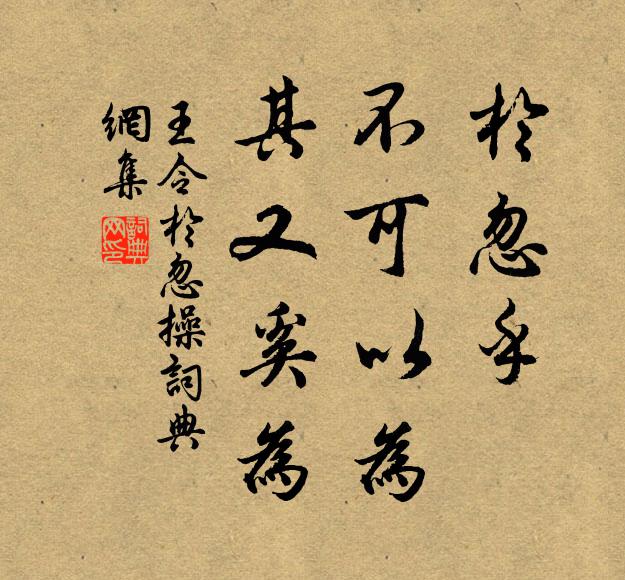 於忽乎
不可以為
其又奚為
王令於忽操詞典
網集
詞典
网印